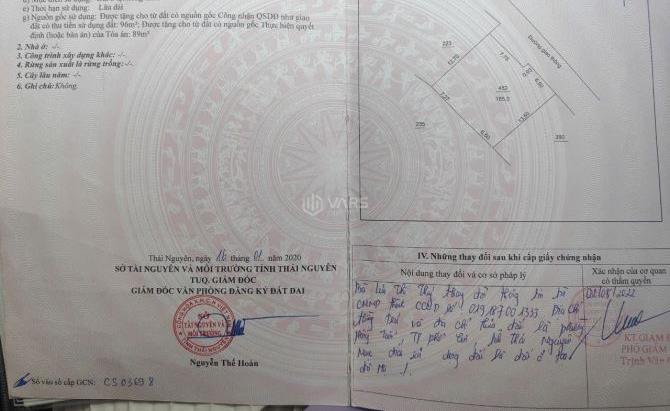 e) Thời hạn sử dụng: Lâu dài
g) Nguồn gốc sử dụng: Được tặng cho đất có nguồn gốc Công nhận QSDĐ như giao
đất có thu tiền sử dụng đất: 96m²; Được tặng cho từ đất có nguồn gốc Thực hiện quyết
định (hoặc bản án) của Tòa án: 89m²
2. Nhà ở: -/-
3. Công trình xây dựng khác: -/-
4. Rừng sản xuất là rừng trồng: -/-
5. Cây lâu năm: -/-
6. Ghi chú: Không.
Thái Nguyên, ngày 16 tháng 01 năm 2020
SỞ TÀI NGUYÊN VÀ MÔI TRƯỜNG TỈNH THÁI NGUYÊN
TUQ. GIÁM ĐỐC
GIÁM ĐỐC VĂN PHÒNG ĐĂNG KÝ ĐẤT ĐAI
SỞ
TÀI NGUYÊN VÀ
MÔI TRƯỜNG
Nguyễn Thế Hoàn
Số vào sổ cấp GCN: CS 03698
VARS
223
Đường giao thông
12,70
7,75
0,02
6,50
452
185,0
7,27
13,60
6,50
235
390
IV. Những thay đổi sau khi cấp giấy chứng nhận
Nội dung thay đổi và cơ sở pháp lý
Xác nhận của cơ quan
có thẩm quyền
Thị thay đổi thông tin từ
CMND thành CCCD số: 019187001333 Địa chỉ
và địa chỉ thửa đất là phường
TP phố Thái Nguyên
KT.GIÁM Đ
PHÓ GIÁM
Trịnh Văn